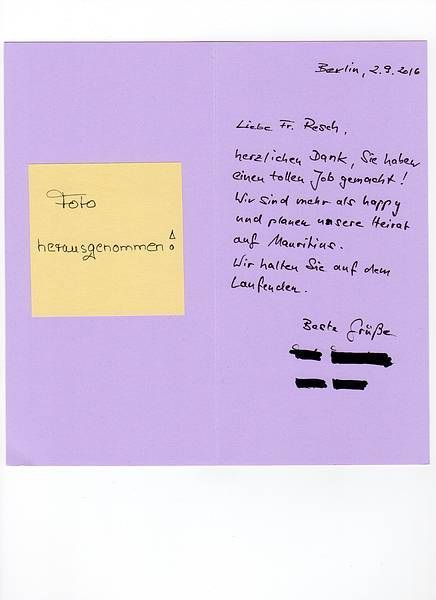 Berlin, 2.9.2016
Liebe Fr. Resch,
herzlichen Dank, Sie haben
einen tollen Job gemacht!
Wir sind mehr als happy
und planen unsere Heirat
auf Mauritius.
Wir halten Sie auf dem
Laufenden.
Beste Grüße
Foto
herausgenommen!